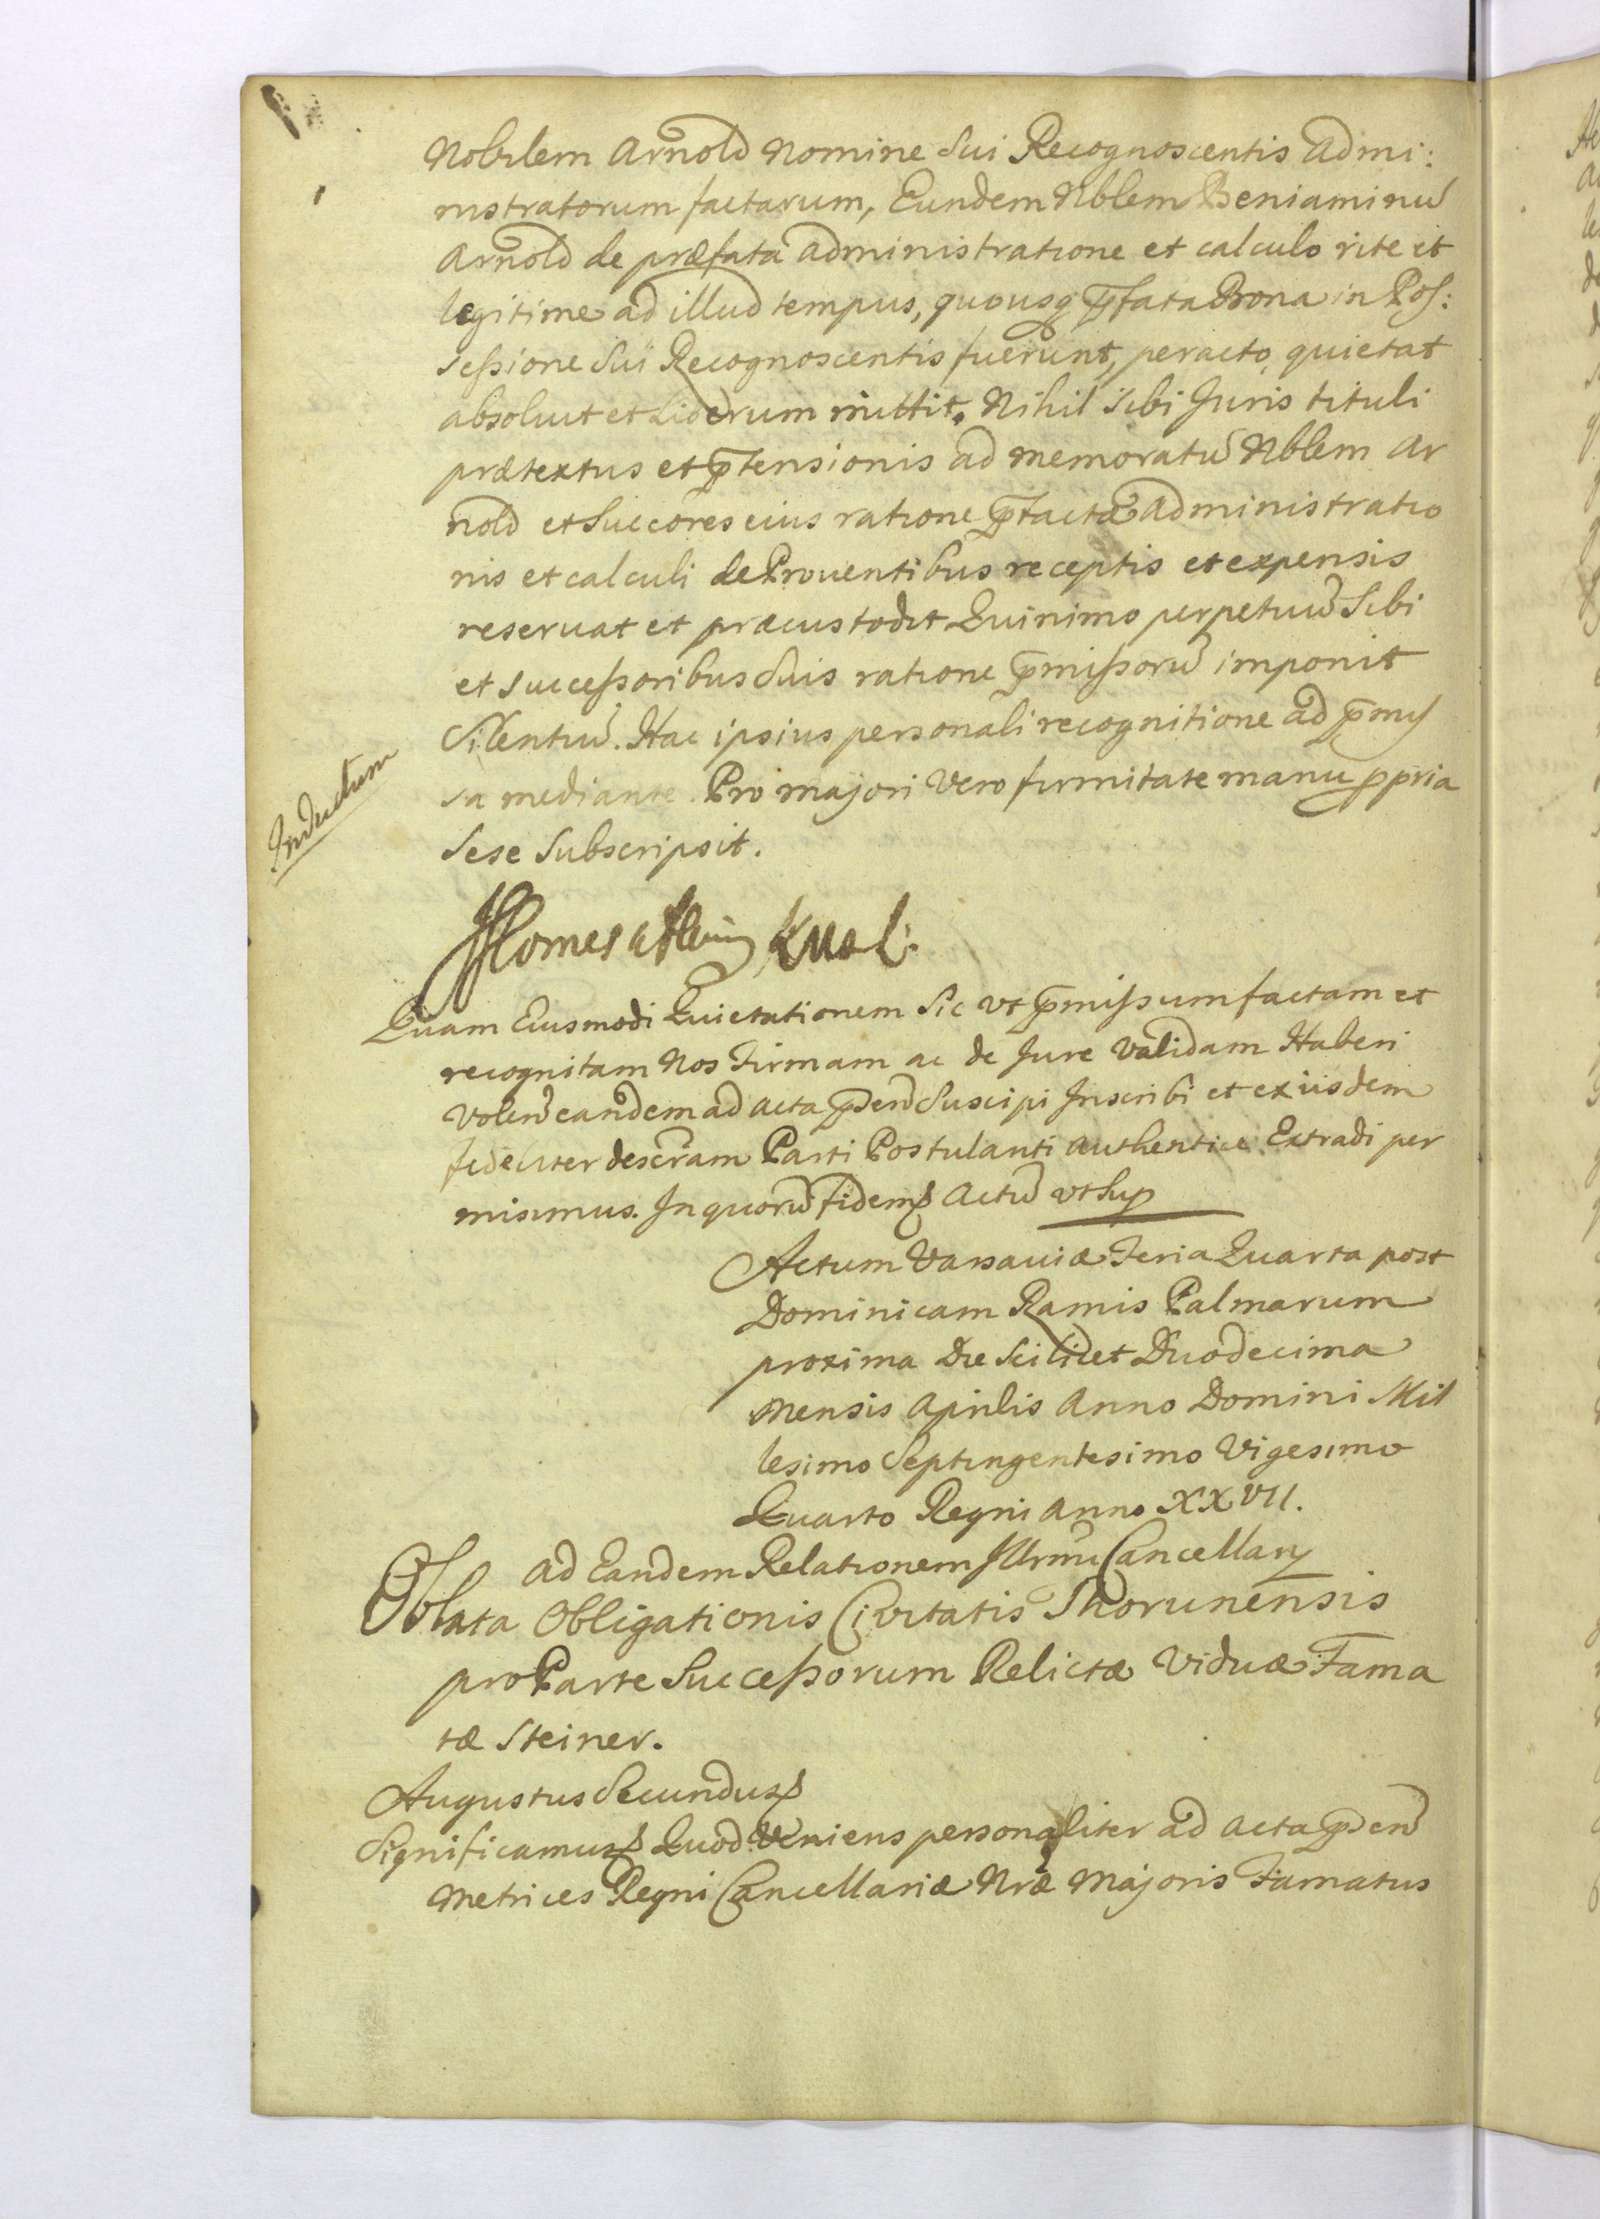 Nobilem Arnold Nomine Sui Recognoscentis Admi:
nistratorum factarum, Eundem Nblem Beniaminū
Arnold de præfata administratione et calculo rite et
legitime ad illud tempus, quousq p̄fata Bona in Pos:
sessione Sui Recognoscentis fuerunt, peracto, quietat
absoluit et Liberum mittit. Nihil sibi Juris tituli
prætextus et p̄tensionis ad memoratū Nblem Ar
nold et Succores eius ratione p̄factæ administratio
nis et calculi de Prouentibus receptis et expensis
reseruat et præcustodit Quinimo perpetuū Sibi
et successoribus Suis ratione p̄missorū imponit
Silentiū. Hac ipsius personali recognitione ad p̄mis
sa mediante. Pro majori Vero firmitate manu ppria
Sese Subscripsit.
Inductum
Quam Eiusmodi Quietationem Sic vt p̄missum factam et
recognitam Nos Firmam ac de Jure Validam Haberi
Volen̄ eandem ad acta p̄sen̄ Suscipi Inscribi et ex iisdem
fideliter descr̄am Parti Postulanti authentice Extradi per
misimus. In quorū fidem Actū vt Sup
Actum Varsauiæ Feria Quarta post
Dominicam Ramis Palmarum
proxima Die Scilicet Duodecima
Mensis Aprilis Anno Domini Mil
lesimo Septingentesimo Vigesimo
Quarto Regni Anno XXVII.
Ad Eandem Relationem Illrmi Cancellarij
Oblata Obligationis Ciuitatis Thorunensis
pro Parte Successorum Relictæ Viduæ Fama
tæ Steiner.
Augustus Secundus
Significamus Quod Veniens personaliter ad Acta p̄sen̄
Metrices Regni Cancellariæ Nræ Majoris Famatus